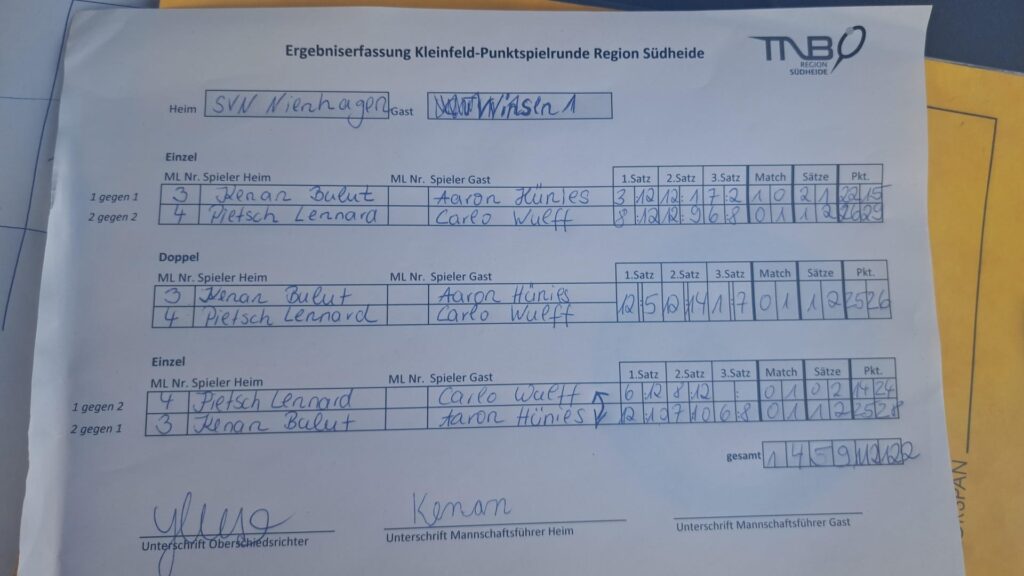 Ergebniserfassung Kleinfeld-Punktspielrunde Region Südheide
TNB
REGION
SÜDHEIDE
Heim SVN Nienhagen Gast Witsen 1
Einzel
ML Nr. Spieler Heim ML Nr. Spieler Gast 1.Satz 2.Satz 3.Satz Match Sätze Pkt.
1 gegen 1 3 Kenan Bulut Aaron Hünies 3 12 12 1 7 2 1 0 2 1 22 15
2 gegen 2 4 Pietsch Lennard Carlo Wulff 8 12 12 9 6 8 0 1 1 2 26 29
Doppel
ML Nr. Spieler Heim ML Nr. Spieler Gast 1.Satz 2.Satz 3.Satz Match Sätze Pkt.
3 Kenan Bulut Aaron Hünies
12 5 12 14 1 7 0 1 1 2 25 26
4 Pietsch Lennard Carlo Wulff
Einzel
ML Nr. Spieler Heim ML Nr. Spieler Gast 1.Satz 2.Satz 3.Satz Match Sätze Pkt.
1 gegen 2 4 Pietsch Lennard Carlo Wulff 6 12 8 12 0 1 0 2 14 24
2 gegen 1 3 Kenan Bulut Aaron Hünies 12 10 7 10 6 8 0 1 1 2 25 28
gesamt 1 4 5 9 112 122
Kenan
Unterschrift Oberschiedsrichter Unterschrift Mannschaftsführer Heim Unterschrift Mannschaftsführer Gast